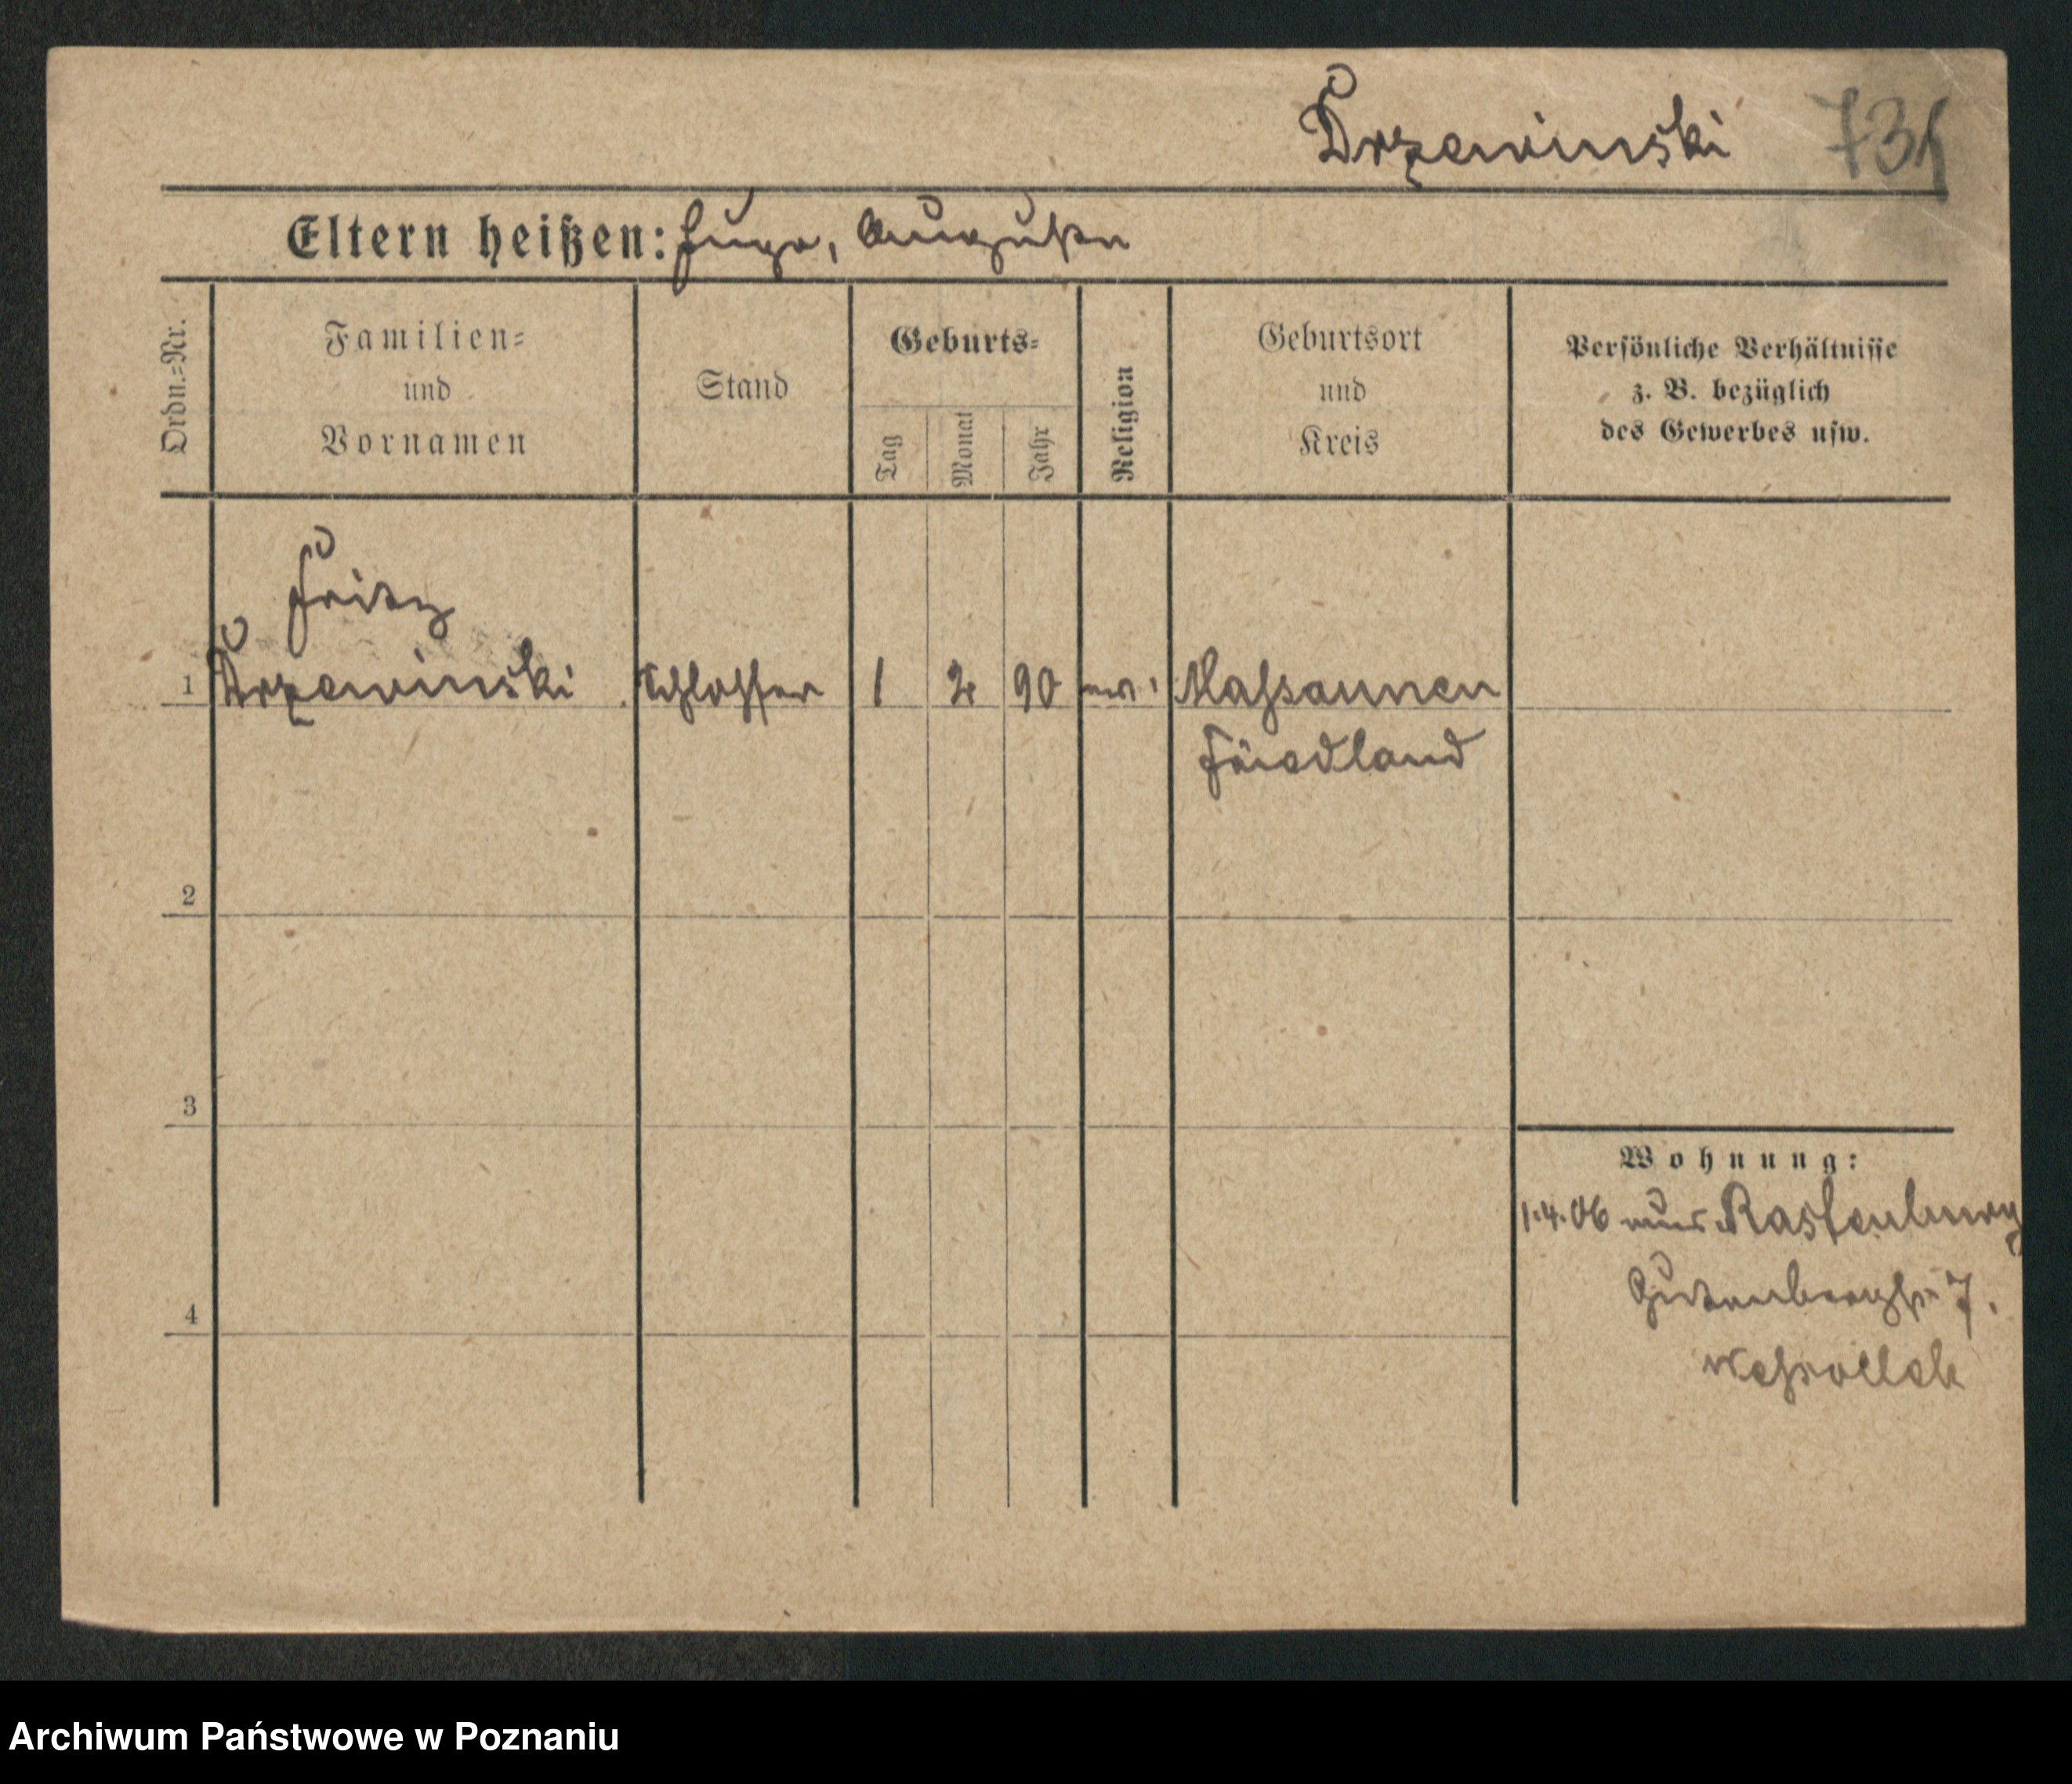 Drzewinski 731
Eltern heißen: Hugo, Auguste
Ordn.=Nr.
Familien=
und
Vornamen
Stand
Geburts=
Tag
Monat
Jahr
Religion
Geburtsort
und
Kreis
Persönliche Verhältnisse
z. B. bezüglich
des Gewerbes usw.
Fritz
1 Drzewinski Schlosser 1 2 90 ev. Massaunen
Friedland
2
3
4
Wohnung:
1.4.06 aus Rastenburg
Gutenbergstr 7.
Archiwum Państwowe w Poznaniu